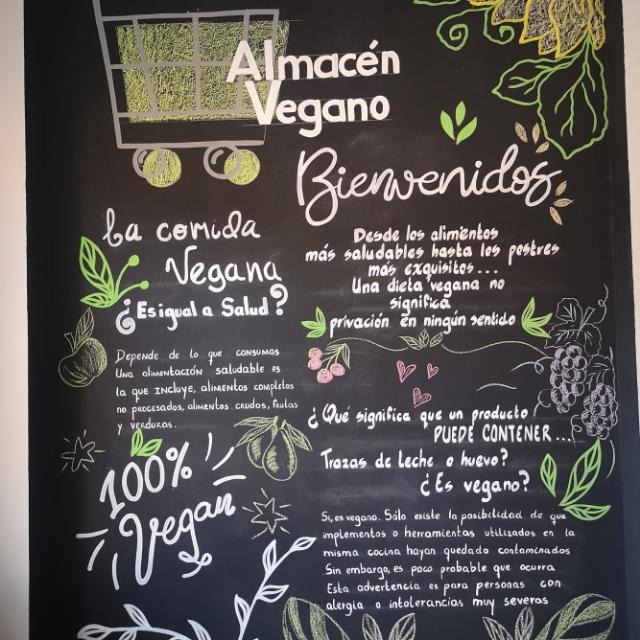 Almacén
Vegano
Bienvenidos
La comida
Vegana
¿Es igual a Salud?
Depende de lo que consumas
Una alimentación saludable es
la que INCLUYE, alimentos completos
no procesados, alimentos crudos, frutas
y verduras.
100%
Vegan
Desde los alimentos
más saludables hasta los postres
más exquisitos...
Una dieta vegana no
significa
privación en ningún sentido
¿Qué significa que un producto
PUEDE CONTENER...
Trazas de Leche o huevo?
¿Es vegano?
Si, es vegano. Sólo existe la posibilidad de que
implementos o herramientas utilizados en la
misma cocina hayan quedado contaminados
Sin embargo, es poco probable que ocurra
Esta advertencia es para personas con
alergia o intolerancias muy severas